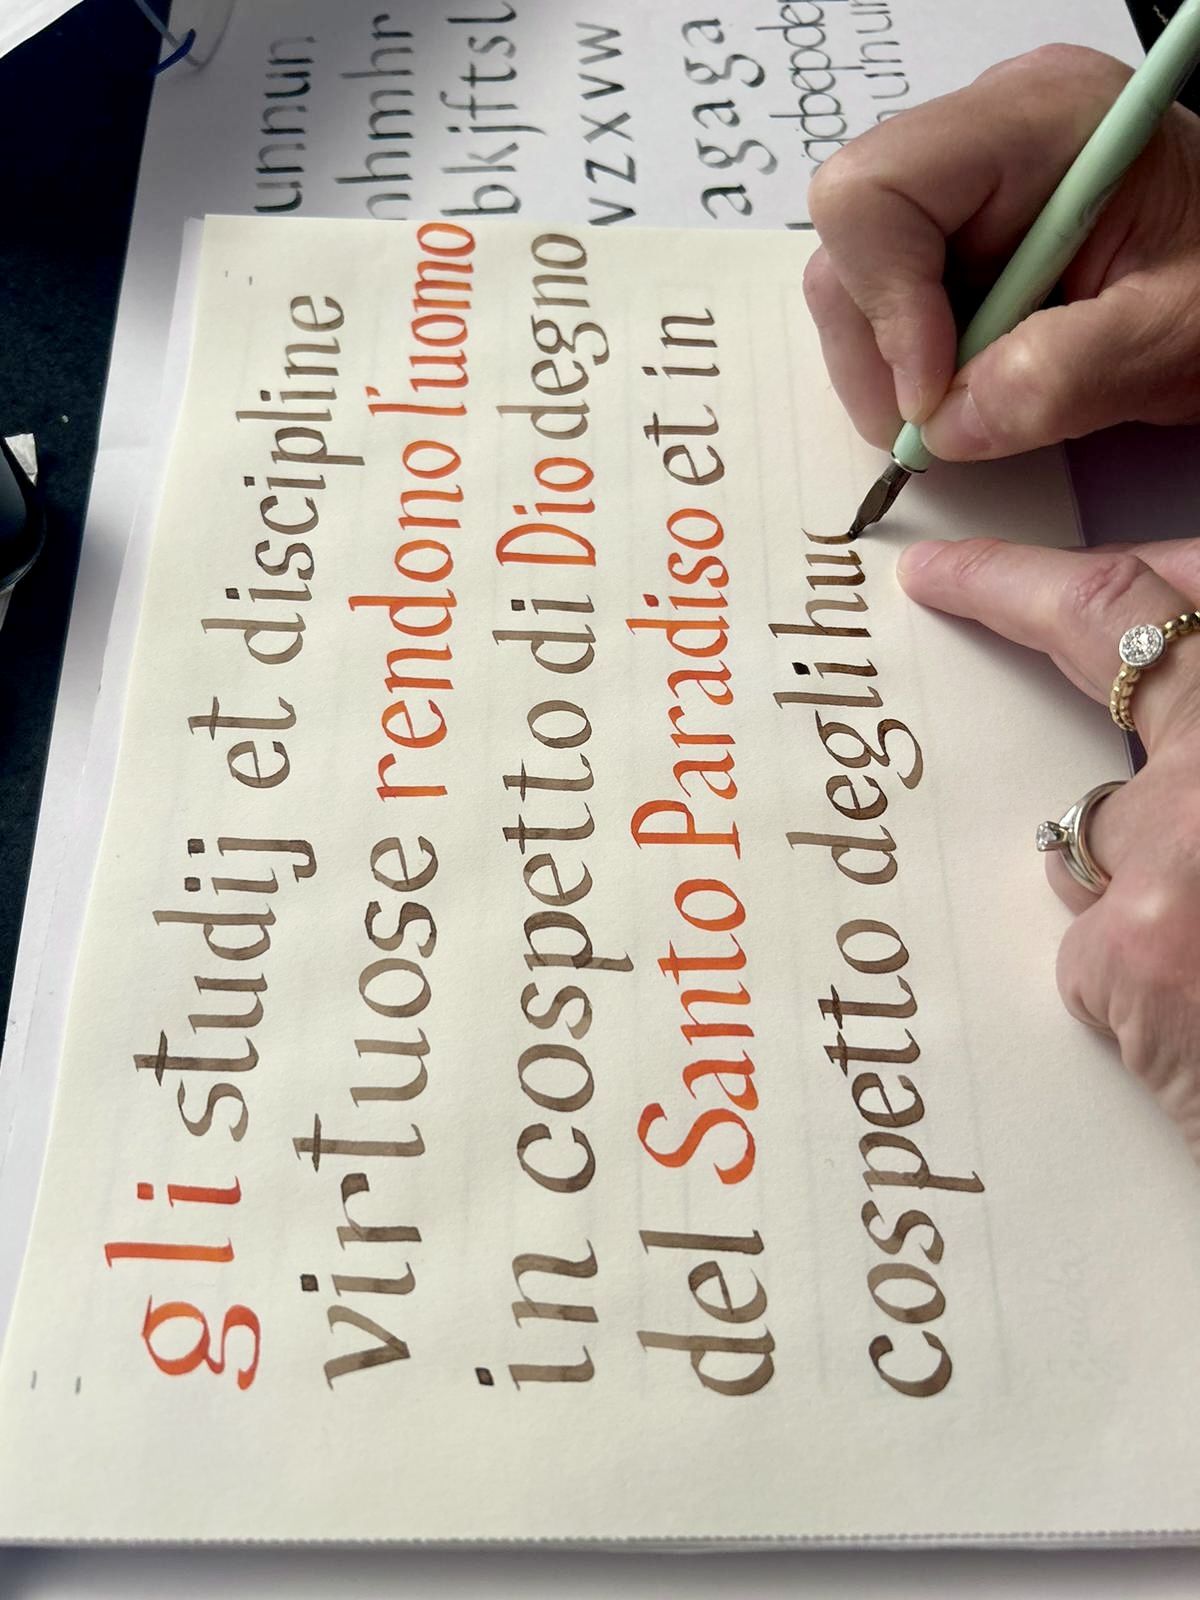 unnun
nhmhr
bkjftsl
vzxvw
agaga
gli studij et discipline
virtuose rendono l'uomo
in cospetto di Dio degno
del Santo Paradiso et in
cospetto degli hu